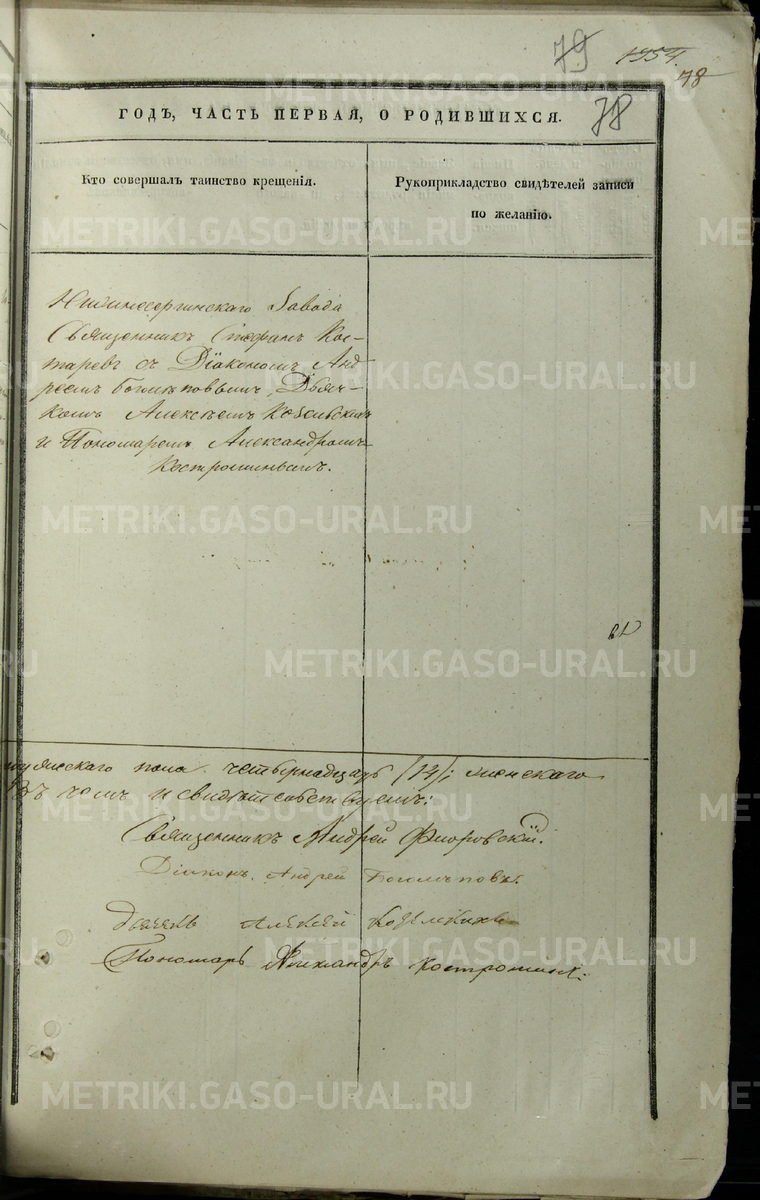 79 1954.
78
ГОДЪ, ЧАСТЬ ПЕРВАЯ, О РОДИВШИХСЯ. 78
Кто совершалъ таинство крещенія.
Рукоприкладство свидѣтелей записи
по желанію.
Нижнесергинскаго Завода
Священникъ Стефанъ Кос-
таревъ съ Діакономъ Анд
реемъ Боголѣповымъ, Дьяч-
комъ Алексѣемъ Козельскихъ
и Пономаремъ Александромъ
Костроминымъ.
мужескаго пола четырнадцать /14/; женскаго
Въ чемъ и свидѣтельствуемъ:
Священникъ Андрей Флоровскій.
Діаконъ Андрей Боголѣповъ.
Дьячекъ Алексей Козельскихъ
Пономарь Александръ Костроминъ:
METRIKI.GASO-URAL.RU